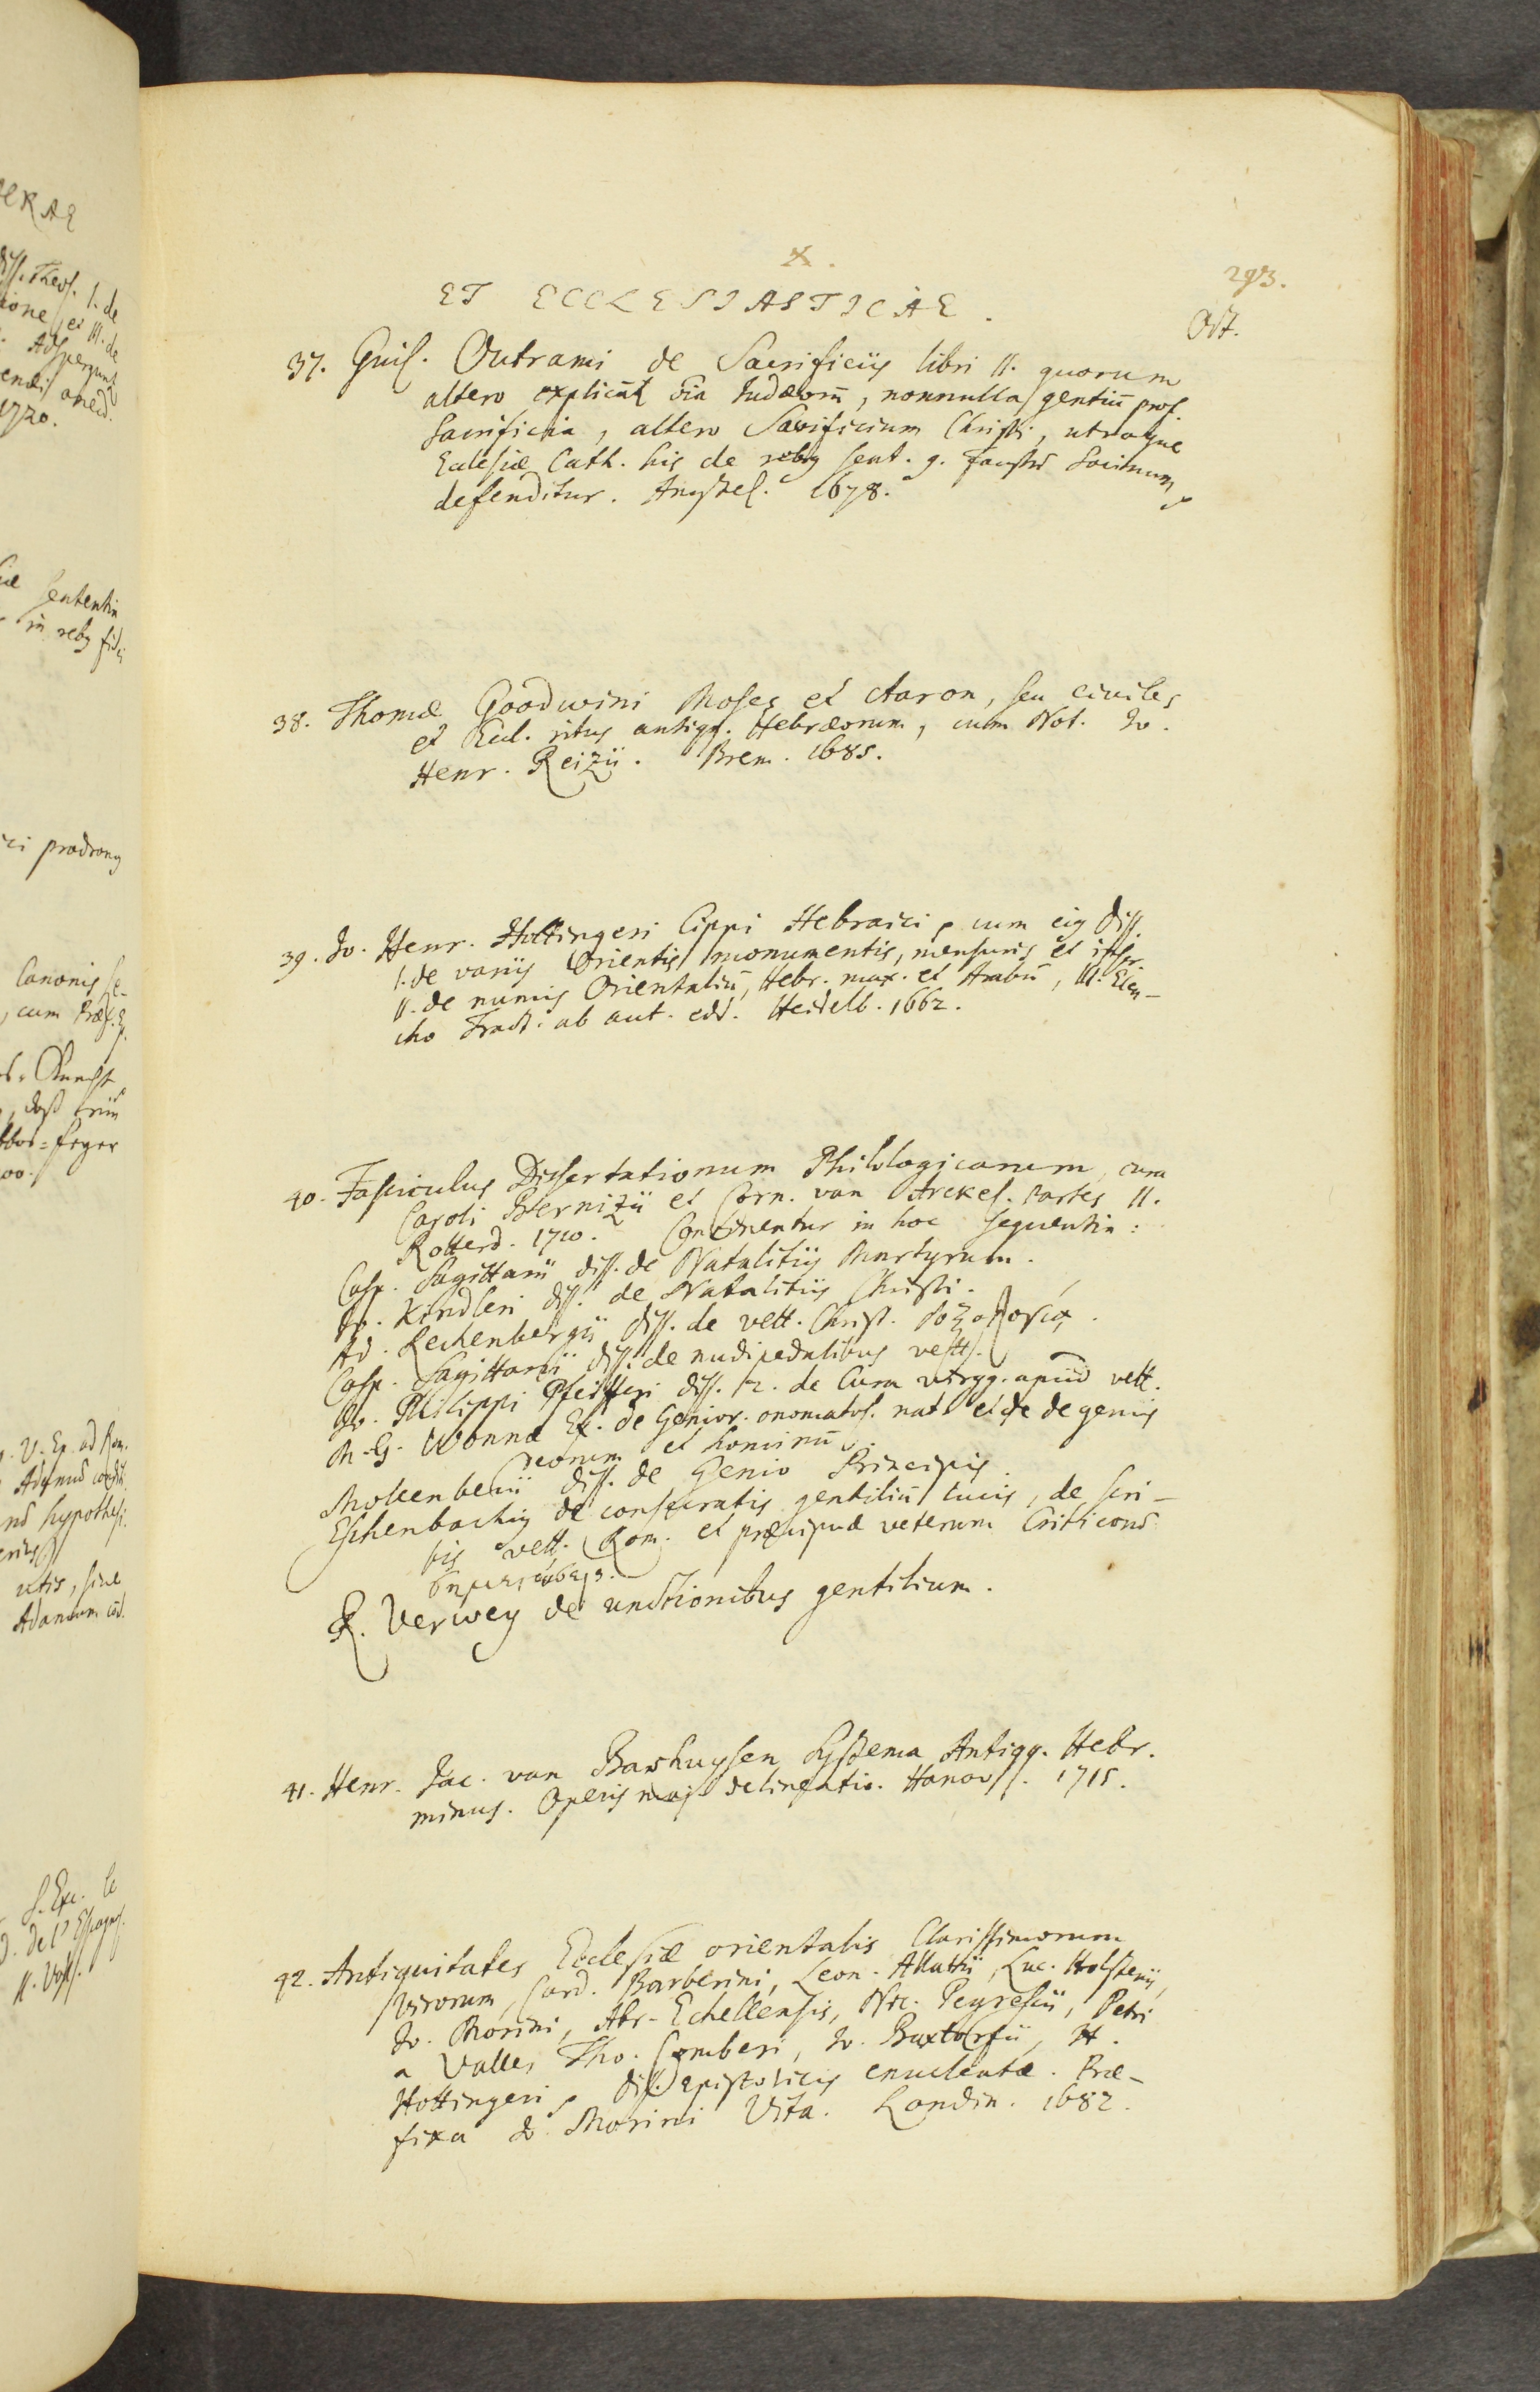 X.
293.
ET ECCLESIASTICAE.
Oct.
37. Guil. Outrami de Sacrificiis libri II. quorum
altero explicāt oīa Judæorū, nonnulla gentiū prof.
Sacrificia, altero Sacrificium Christi, utroque
Ecclesiæ Cath. his de rebg sent. g. Faustū Socinum
defenditur. Amstel. 1678.
38. Thomæ Goodwini Moses et Aaron, seu civiles
et Eccl. ritus antiqq. Hebræorum, cum Not. Jo.
Henr. Reizii. Brem. 1685.
39. Jo. Henr. Hottingeri Cippi Hebraici, cum eig Diss.
I. de variis Orientis monumentis, mensuris et inscr.
II. de numis Orientaliū, Hebr. max. et Arabū, III. Elen-
cho Tract. ab aut. edd. Heidelb. 1662.
40. Fasciculus Dissertationum Philologicarum, cura
Caroli Sternizii et Corn. van Arckel. Partes II.
Rotterd. 1710. Continentur in hoc sequentia:
Casp. Sagittarii diss. de Natalitiis Martyrum.
Jo. Kindleri diss. de Natalitiis Christi.
Ad. Rechenbergii diss. de vett. Christ.
Casp. Sagittarii diss. de nudipedalibus vett.
Jo. Philippi Pfeifferi diss. 12. de Cura virgg. apud vett.
M. G. Wonnæ Ex. de Genior. onomatol. nat. et de genis
Deorum et hominū.
Mollenbecii diss. de Genio Principis.
Eschenbachig de consecratis gentiliū lucis, de scri-
bis vett. Rom. et præcipuè veterum Criticorū
σημειώσεις.
R. Verwey de unctionibus gentilium.
41. Henr. Jac. van Bashuysen Systema Antiqq. Hebr.
minus. Operis maj. delineatio. Hanov. 1715.
42. Antiquitates Ecclesiæ orientalis Clarissimorum
Virorum, Card. Barberini, Leon. Allatii, Luc. Holstenii,
Jo. Morini, Abr. Echellensis, Nic. Peyrescii, Petri
a Valle, Tho. Comberi, Jo. Buxtorfii, H.
Hottingeri, diss. epistolicis enucleatæ. Præ-
fixa Jo. Morini Vita. Londin. 1682.